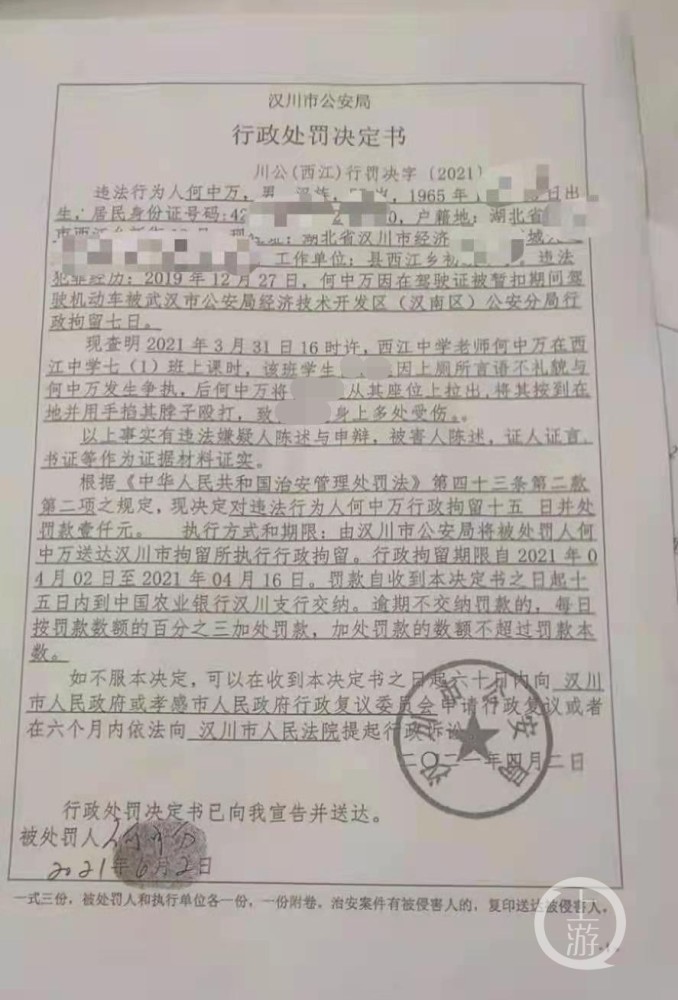 汉川市公安局
行政处罚决定书
川公(西江)行罚决字〔2021〕
违法行为人何中万, 男 1965年 日出
生, 居民身份证号码: 42 0, 户籍地: 湖北省
湖北省汉川市经济
工作单位: 县西江乡初 违法
犯罪经历: 2019年12月27日, 何中万因在驾驶证被暂扣期间驾
驶机动车被武汉市公安局经济技术开发区(汉南区)公安分局行
政拘留七日。
现查明2021年3月31日16时许, 西江中学老师何中万在西
江中学七(1)班上课时, 该班学生 因上厕所言语不礼貌与
何中万发生争执, 后何中万将 从其座位上拉出, 将其按到在
地并用手掐其脖子殴打, 致 身上多处受伤。
以上事实有违法嫌疑人陈述与申辩, 被害人陈述, 证人证言、
书证等作为证据材料证实。
根据《中华人民共和国治安管理处罚法》第四十三条第二款
第二项之规定, 现决定对违法行为人何中万行政拘留十五 日并处
罚款壹仟元。 执行方式和期限: 由汉川市公安局将被处罚人何
中万送达汉川市拘留所执行行政拘留。行政拘留期限自2021年0
4月02日至2021年04月16日。罚款自收到本决定书之日起十
五日内到中国农业银行汉川支行交纳。逾期不交纳罚款的, 每日
按罚款数额的百分之三加处罚款, 加处罚款的数额不超过罚款本
数。
如不服本决定, 可以在收到本决定书之日起六十日内向 汉川
市人民政府或孝感市人民政府行政复议委员会申请行政复议或者
在六个月内依法向 汉川市人民法院提起行政诉讼
汉川市公安局
二〇二一年四月二日
行政处罚决定书已向我宣告并送达。
被处罚人 何中万
2021年6月2日
一式三份, 被处罚人和执行单位各一份, 一份附卷。治安案件有被侵害人的, 复印送达被侵害人。
上游
·1·